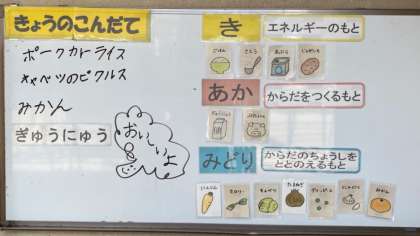 きょうのこんだて
ポークカレーライス
キャベツのピクルス
みかん
ぎゅうにゅう
おいしいよ
き
エネルギーのもと
ごはん
さとう
あぶら
じゃがいも
あか
からだをつくるもと
ぎゅうにゅう
ぶたにく
みどり
からだのちょうしを
ととのえるもと
にんじん
セロリー
キャベツ
たまねぎ
グリンピース
にんにく
みかん